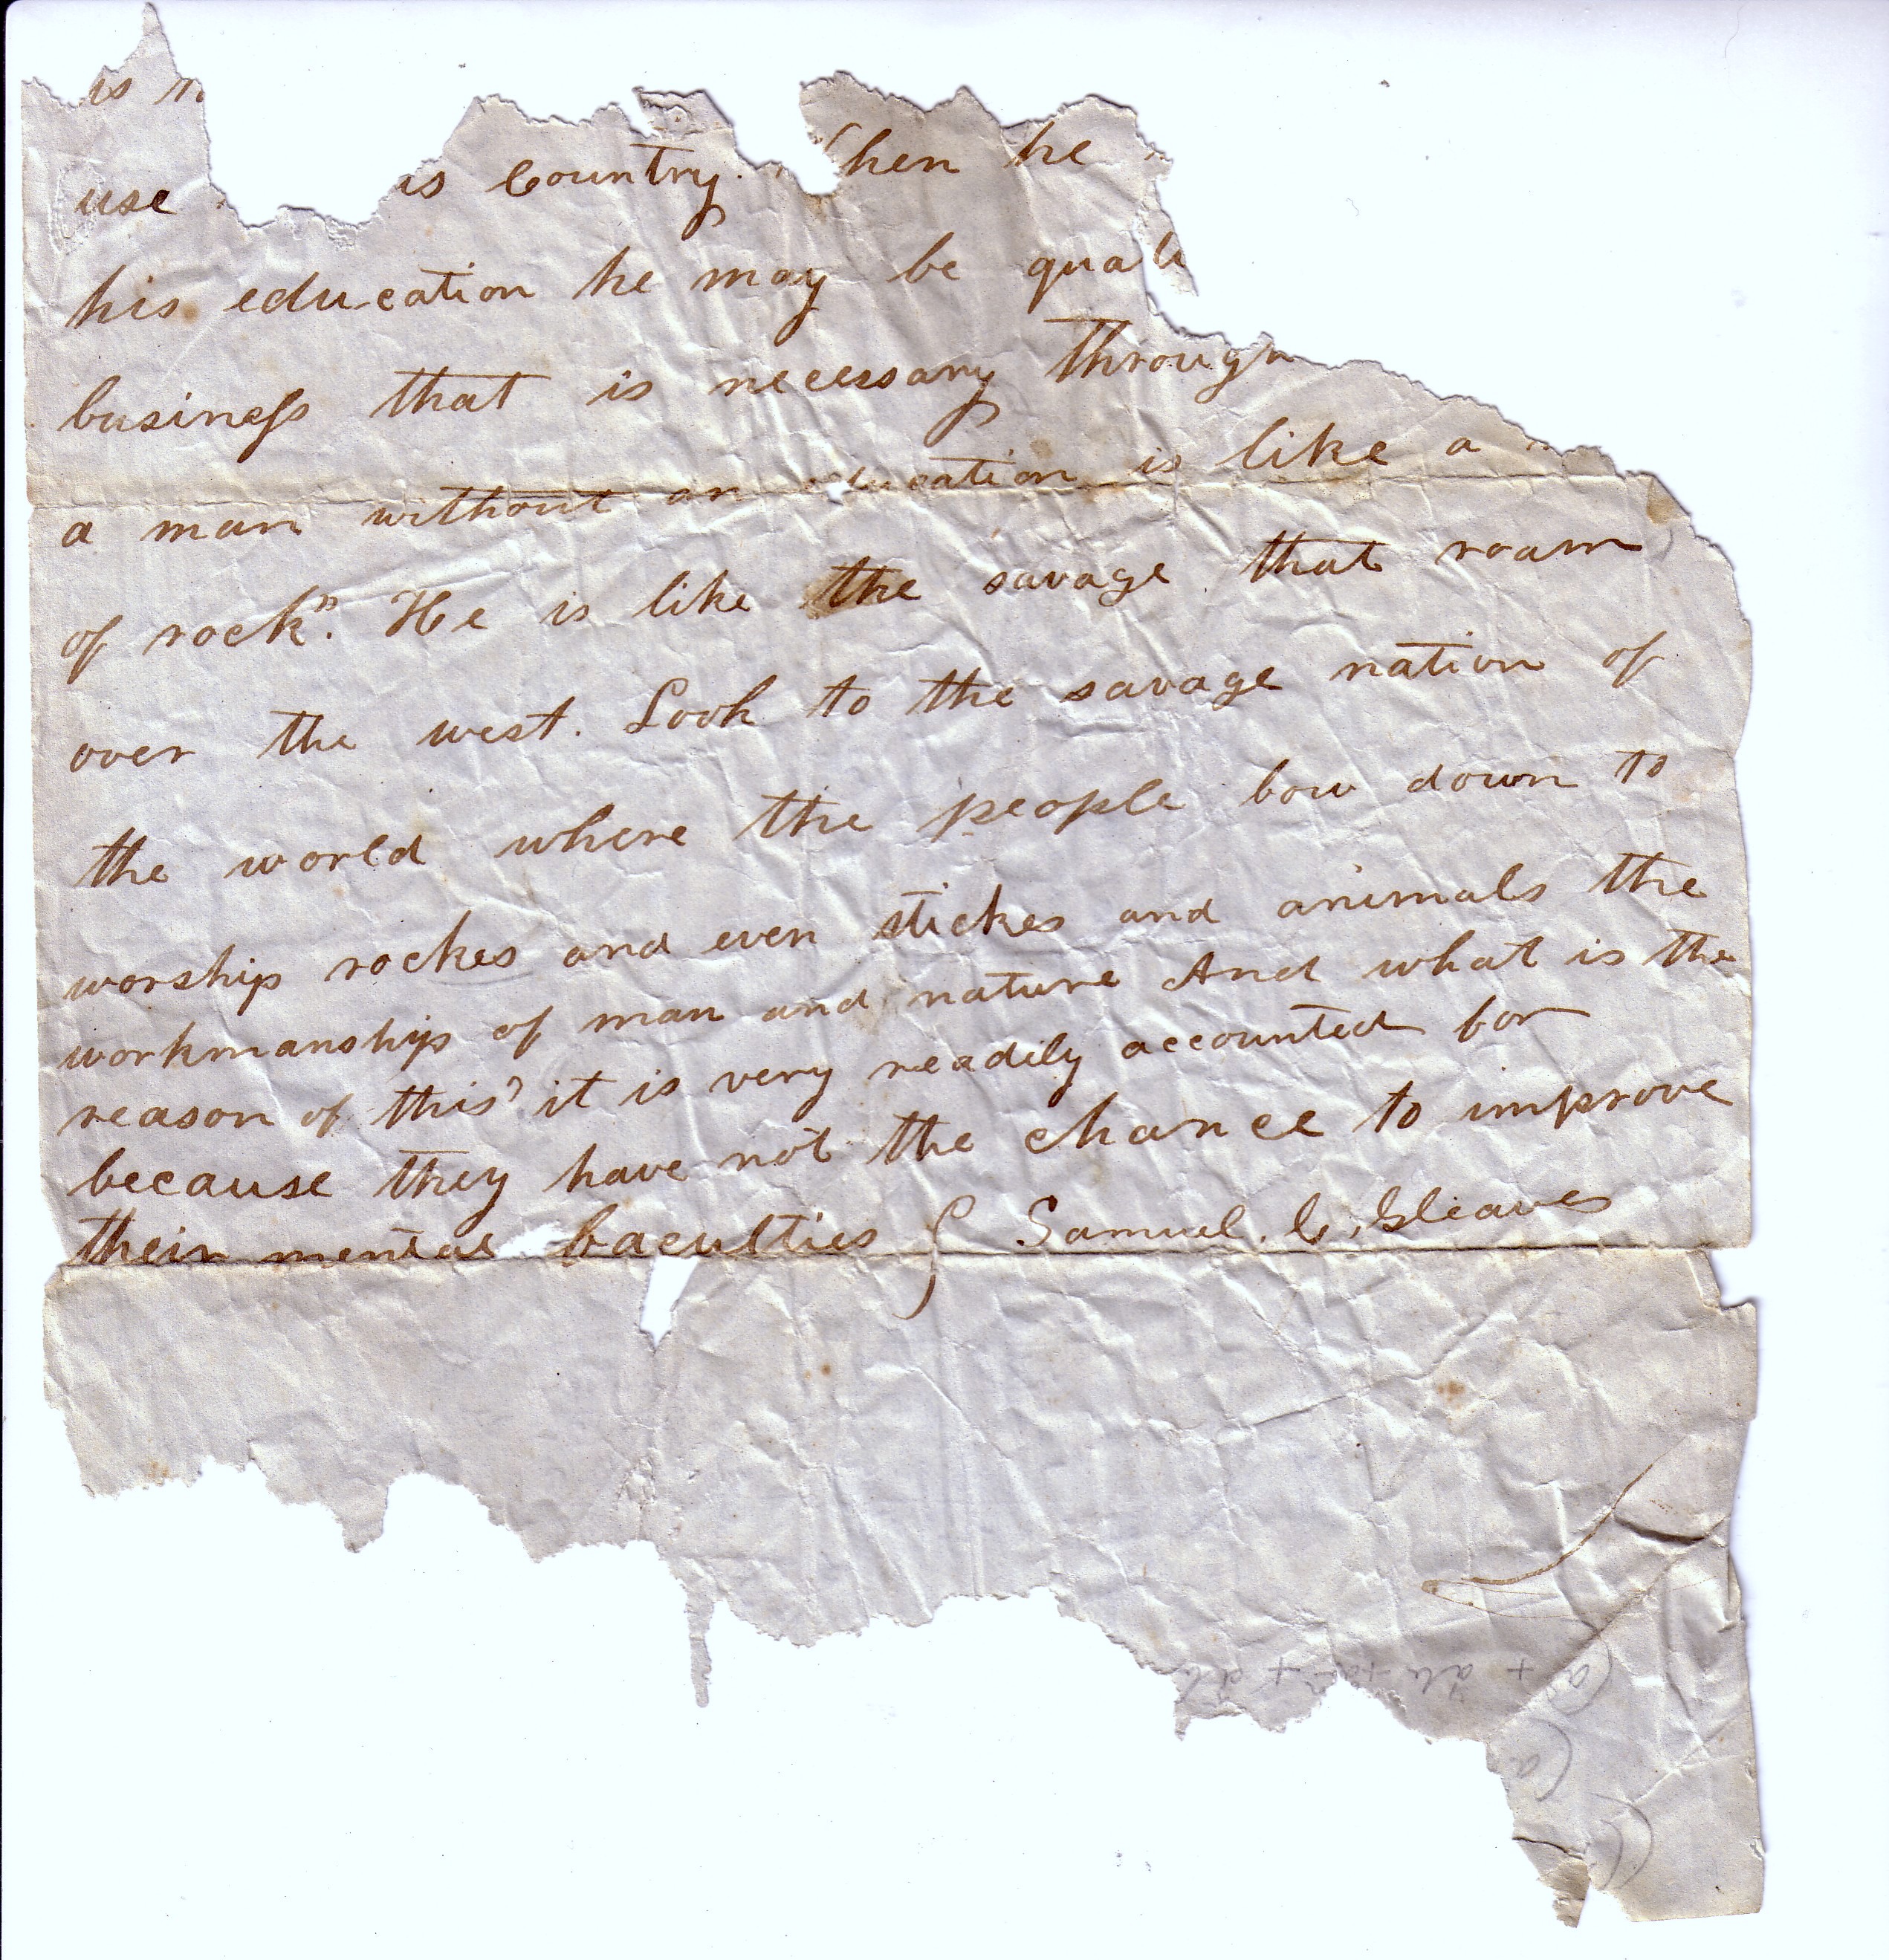 is
use is Country. When he
his education he may be quali
business that is necessary through
a man without an education is like a
of rock". He is like the savage that roam
over the west. Look to the savage nation of
the world where the people bow down to
worship rockes and even stickes and animals the
workmanship of man and nature And what is the
reason of this' it is very readily accounted for
because they have not the chance to improve
their mental faculties Samuel. C. Gleaves